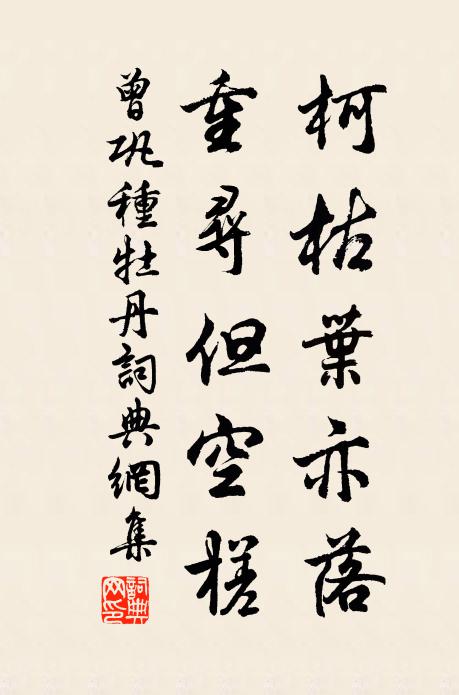 柯枯葉亦落
重尋但空槎
曾巩種牡丹詞典網集
詞典网印